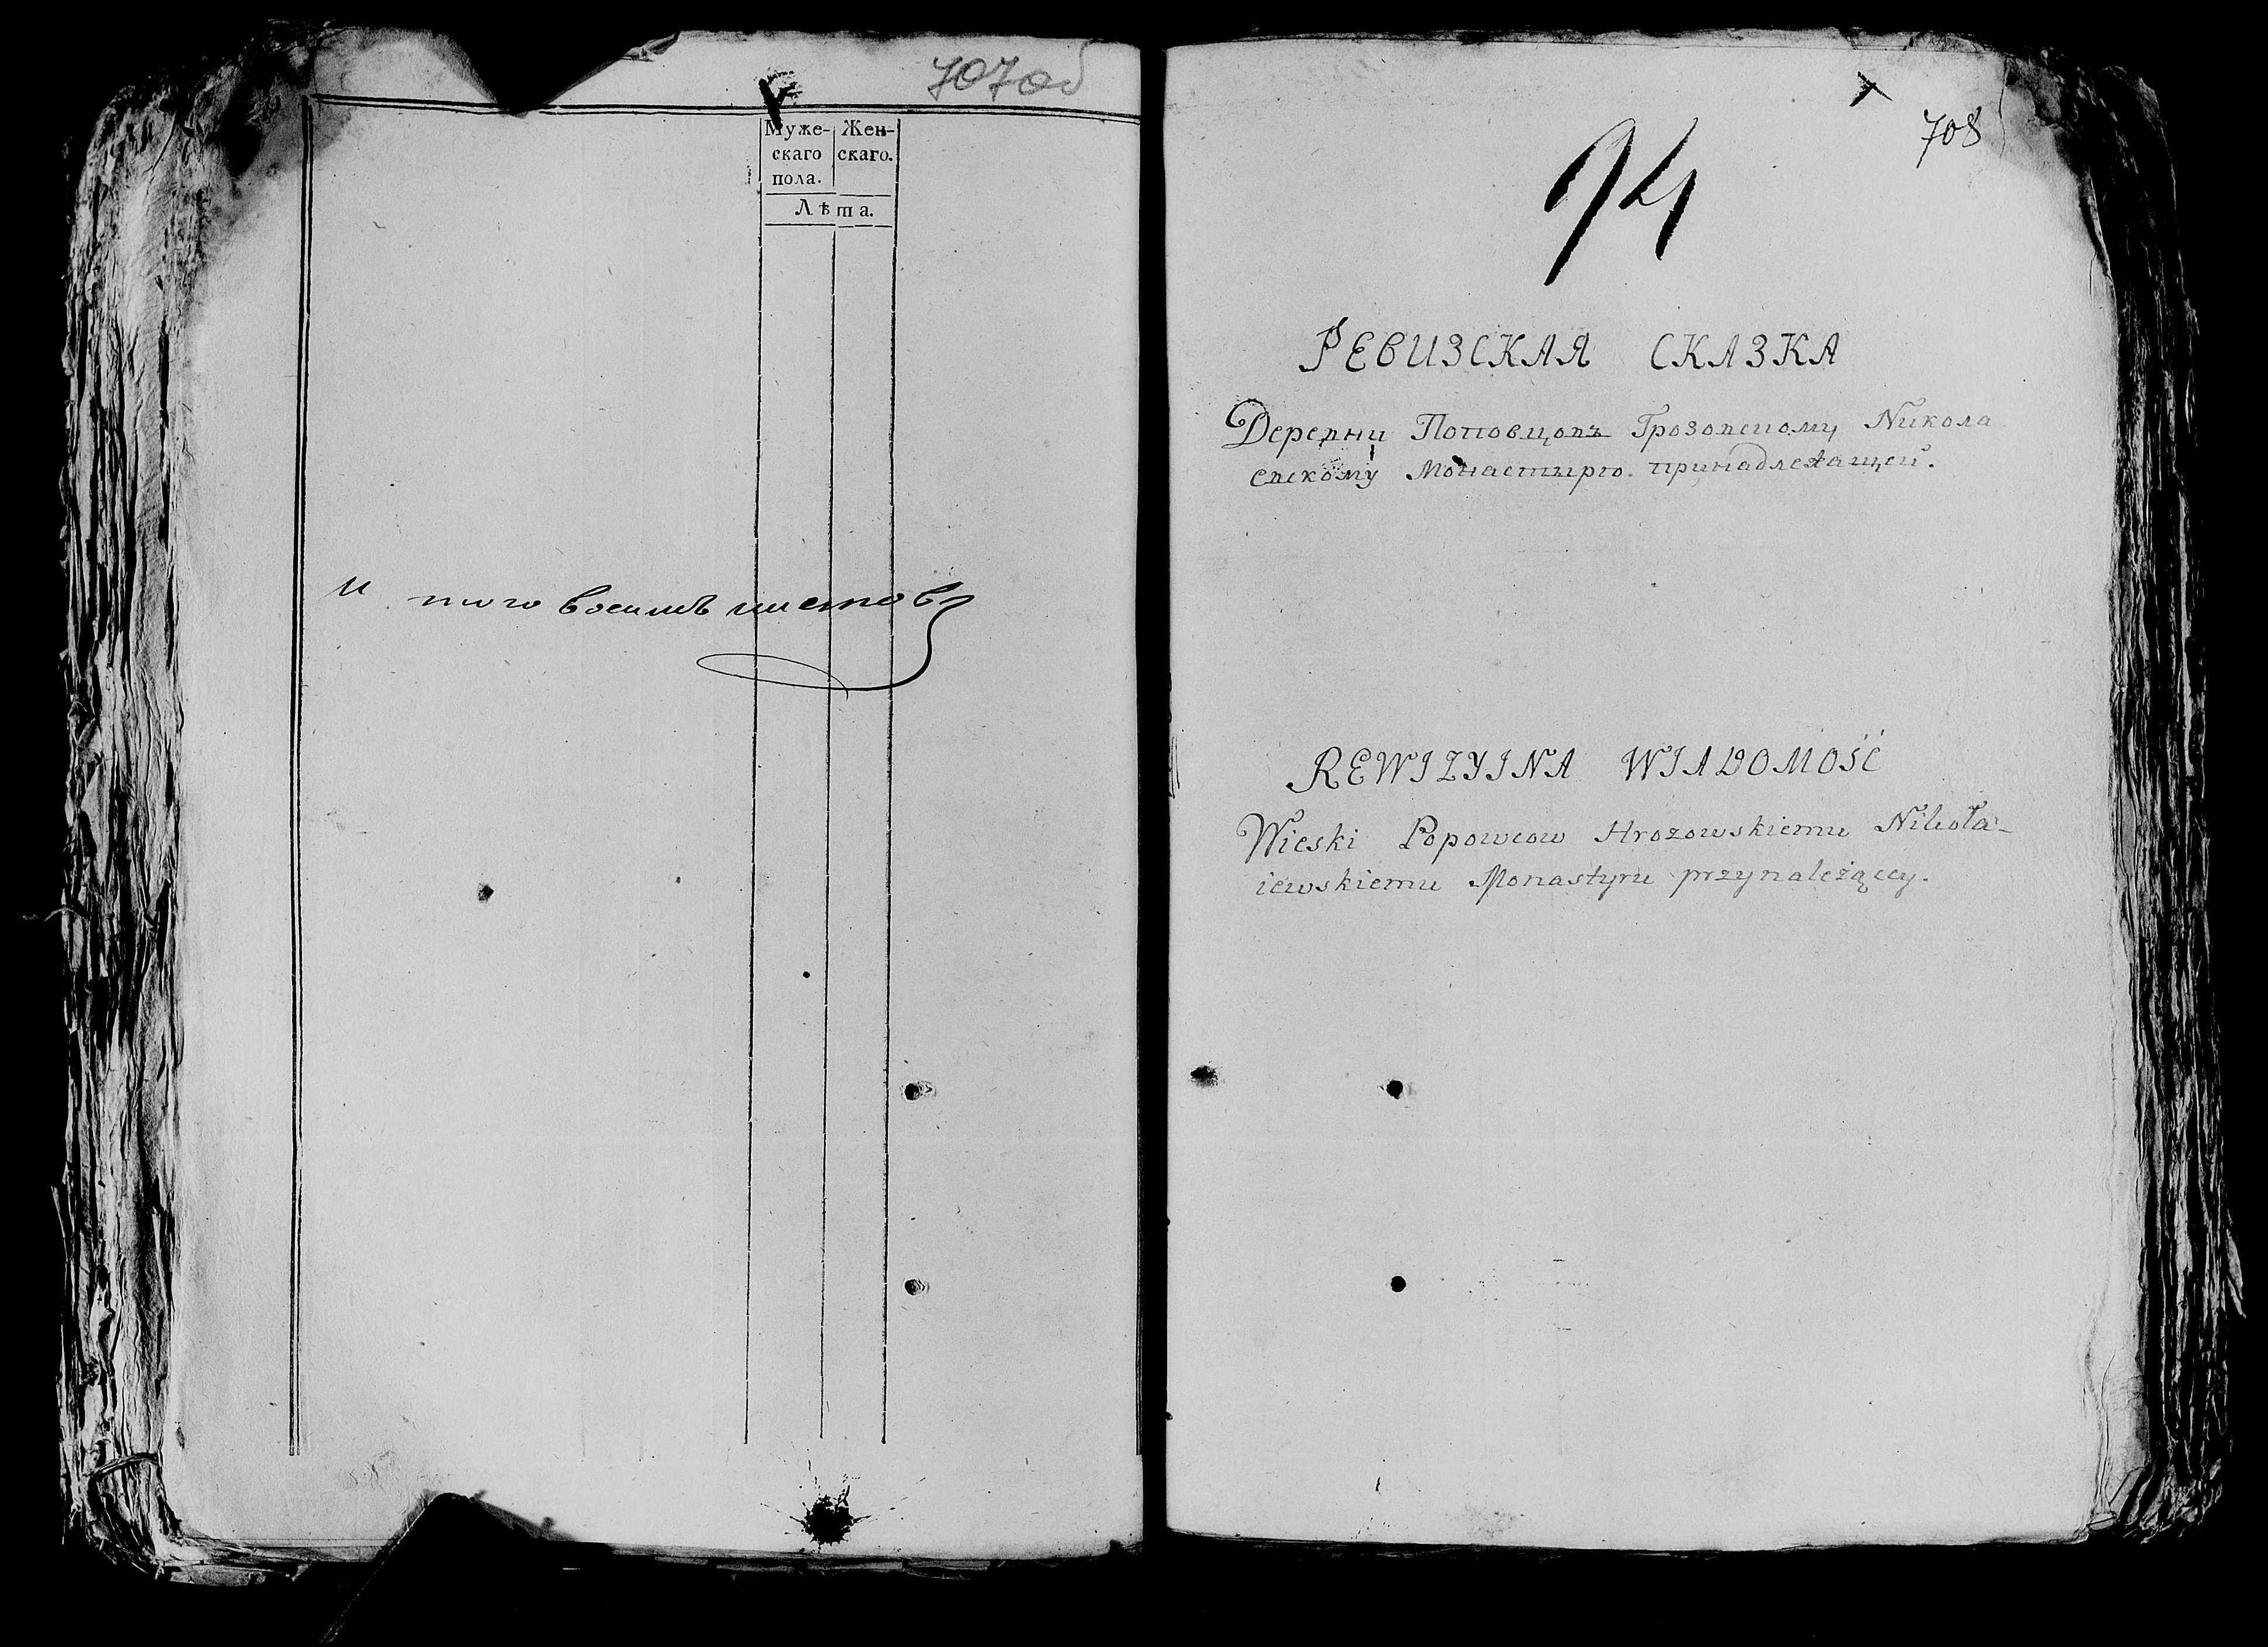 707об
Муже- Жен-
скаго скаго.
пола.
Лѣта.
И того восемь листовъ
708
94
РЕВИЗСКАЯ СКАЗКА
Деревни Поповцовъ Грозовскому Никола
евскому Монастырю принадлежащей.
REWIZYINA WIADOMOŚĆ
Wieski Popowcow Hrozowskiemu Nikoła-
iewskiemu Monastyru przynależącey.